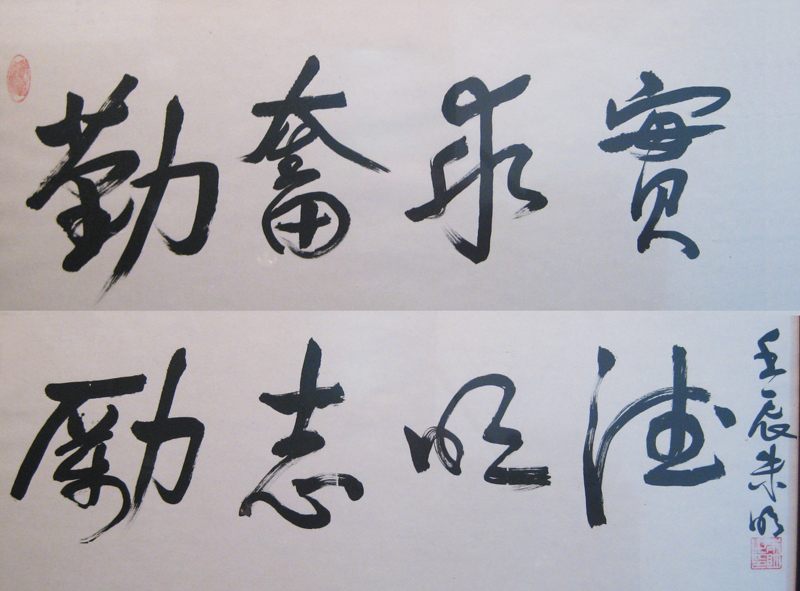 勤奮求實
勵志明德
壬辰朱明